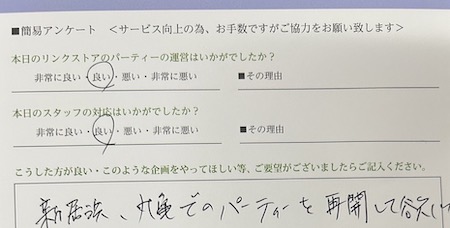 ■簡易アンケート ＜サービス向上の為、お手数ですがご協力をお願い致します＞
本日のリンクストアのパーティーの運営はいかがでしたか？
非常に良い・良い・悪い・非常に悪い ■その理由
本日のスタッフの対応はいかがでしたか？
非常に良い・良い・悪い・非常に悪い ■その理由
こうした方が良い・このような企画をやってほしい等、ご要望がございましたらご記入ください。
新居浜、丸亀でのパーティーを再開して欲しい